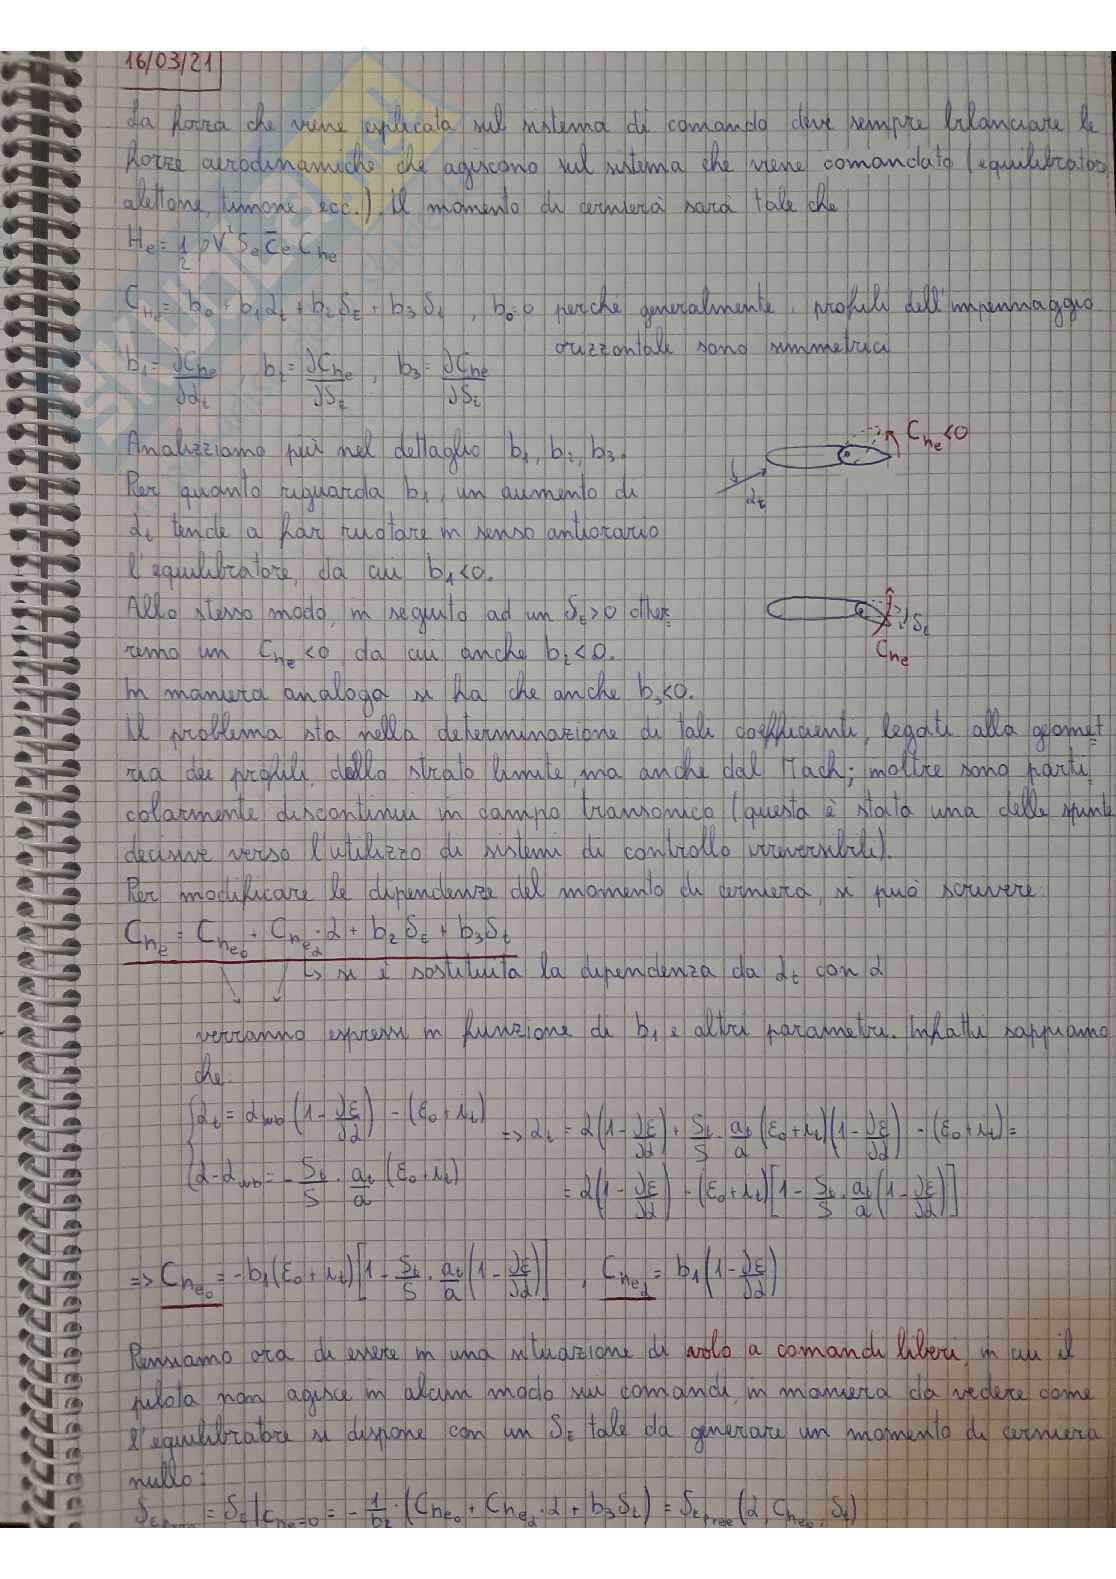 16/03/21
La forza che viene esplicata sul sistema di comando deve sempre bilanciare le
forze aerodinamiche che agiscono sul sistema che viene comandato (equilibratore,
alettone, timone, ecc.). Il momento di cerniera sarà tale che
He = 1/2 ρV² Se c̄e Che
Che = b0 + b1 αt + b2 δE + b3 δt , b0=0 perché generalmente i profili dell'impennaggio
orizzontale sono simmetrici
b1 = ∂Che/∂αt , b2 = ∂Che/∂δE , b3 = ∂Che/∂δt
Analizziamo più nel dettaglio b1, b2, b3.
Che<0
Per quanto riguarda b1, un aumento di
αt
αt tende a far ruotare in senso antiorario
l'equilibratore, da cui b1<0.
Allo stesso modo, in seguito ad un δE>0 otter=
δE
remo un Che<0 da cui anche b2<0.
Che
In maniera analoga si ha che anche b3<0.
Il problema sta nella determinazione di tali coefficienti, legati alla geomet=
ria dei profili, dello strato limite, ma anche dal Mach; inoltre sono parti=
colarmente discontinui in campo transonico (questa è stata una delle spinte
decisive verso l'utilizzo di sistemi di controllo irreversibili).
Per modificare le dipendenze del momento di cerniera, si può scrivere:
Che = Che0 + Cheα·α + b2 δE + b3 δt
↳ si è sostituita la dipendenza da αt con α
verranno espressi in funzione di b1 e altri parametri. Infatti sappiamo
che:
{αt = αwb(1-∂ε/∂α) - (ε0+it) => αt = α(1-∂ε/∂α) + St/S · at/a (ε0+it)(1-∂ε/∂α) - (ε0+it) =
{α-αwb = - St/S · at/a (ε0+it) = α(1-∂ε/∂α) - (ε0+it)[1 - St/S · at/a (1-∂ε/∂α)]
=> Che0 = -b1(ε0+it)[1 - St/S · at/a (1-∂ε/∂α)] , Cheα = b1(1-∂ε/∂α)
Pensiamo ora di essere in una situazione di volo a comandi liberi, in cui il
pilota non agisce in alcun modo sui comandi, in maniera da vedere come
l'equilibratore si dispone con un δE tale da generare un momento di cerniera
nullo:
δEfree = δE|Che=0 = - 1/b2 · (Che0 + Cheα·α + b3δt) = δEfree (α, Che0, δt)